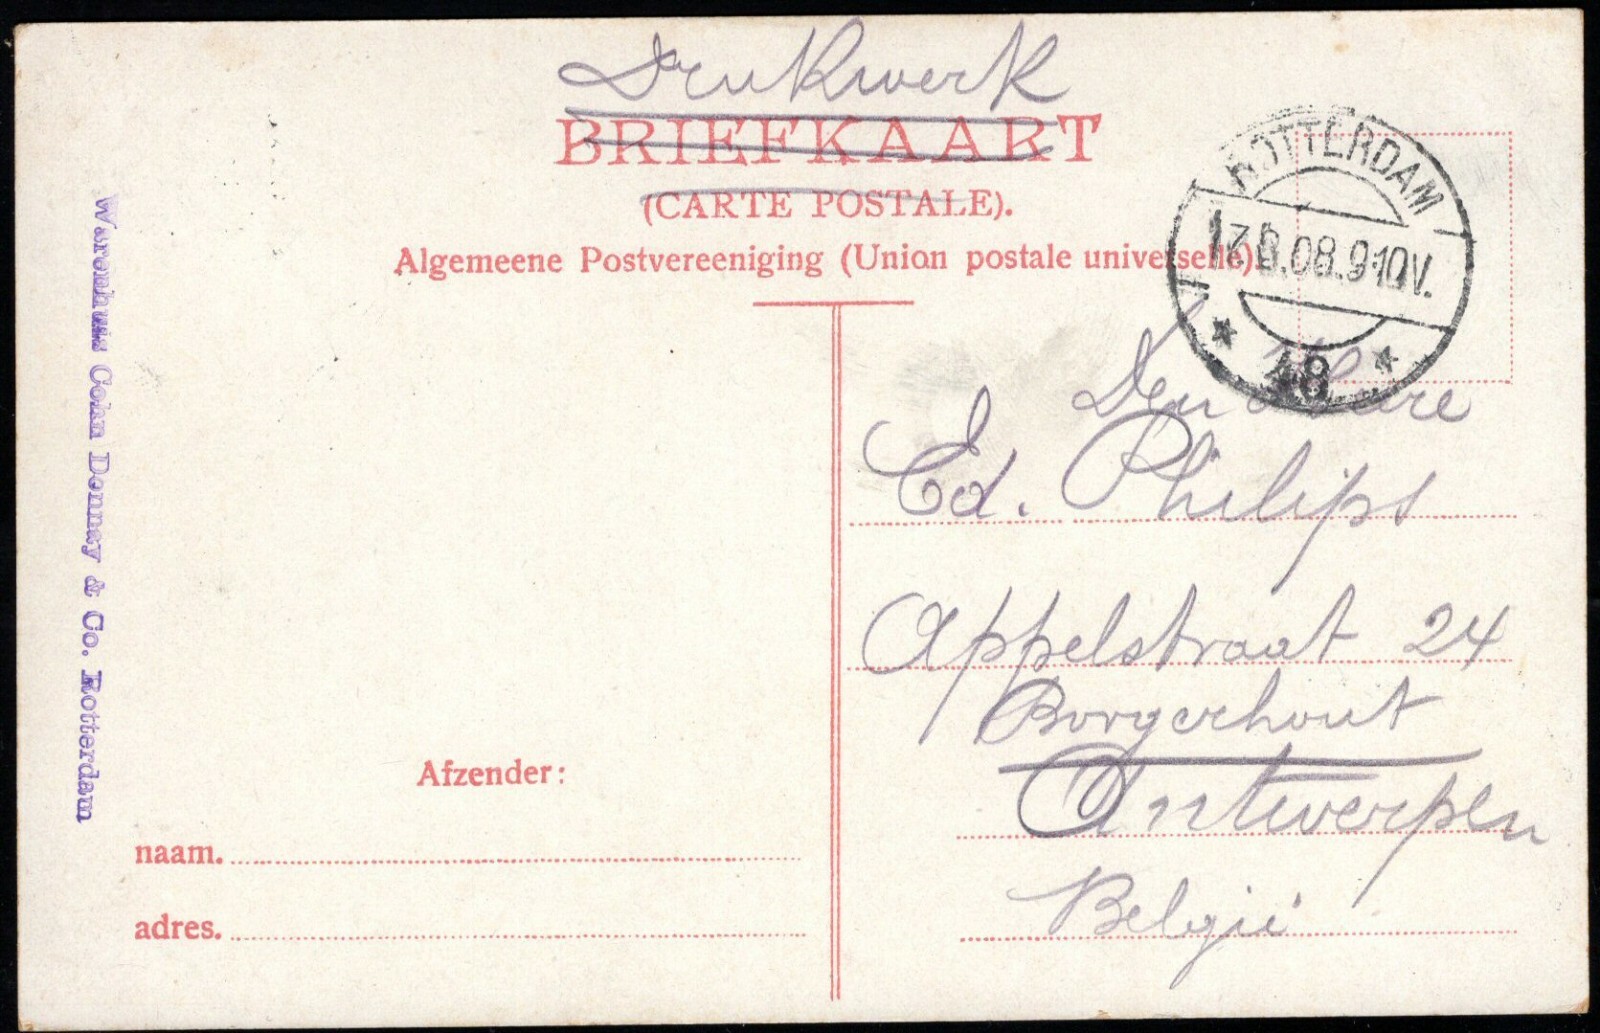 Drukwerk
BRIEFKAART
(CARTE POSTALE).
Algemeene Postvereeniging (Union postale universelle).
ROTTERDAM
.08.9-10V.
* 48 *
Warenhuis Cohn Donnay & Co. Rotterdam
Den Heere
Ed. Philips
Appelstraat 24
Borgerhout
Antwerpen
België
Afzender:
naam.
adres.